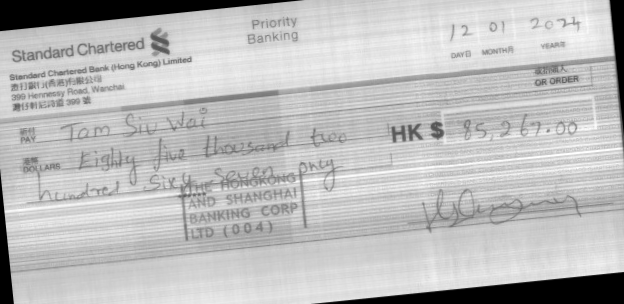 Standard Chartered
Priority
Banking
12 01 2024
DAY日 MONTH月 YEAR年
Standard Chartered Bank (Hong Kong) Limited
渣打銀行(香港)有限公司
399 Hennessy Road, Wanchai
灣仔軒尼詩道 399 號
或持票人
OR ORDER
祈付
PAY Tam Siu Wai
港幣
DOLLARS Eighty five thousand two
HK $ 85,267.00
hundred sixy seven only
THE HONGKONG
AND SHANGHAI
BANKING CORP
LTD (004)